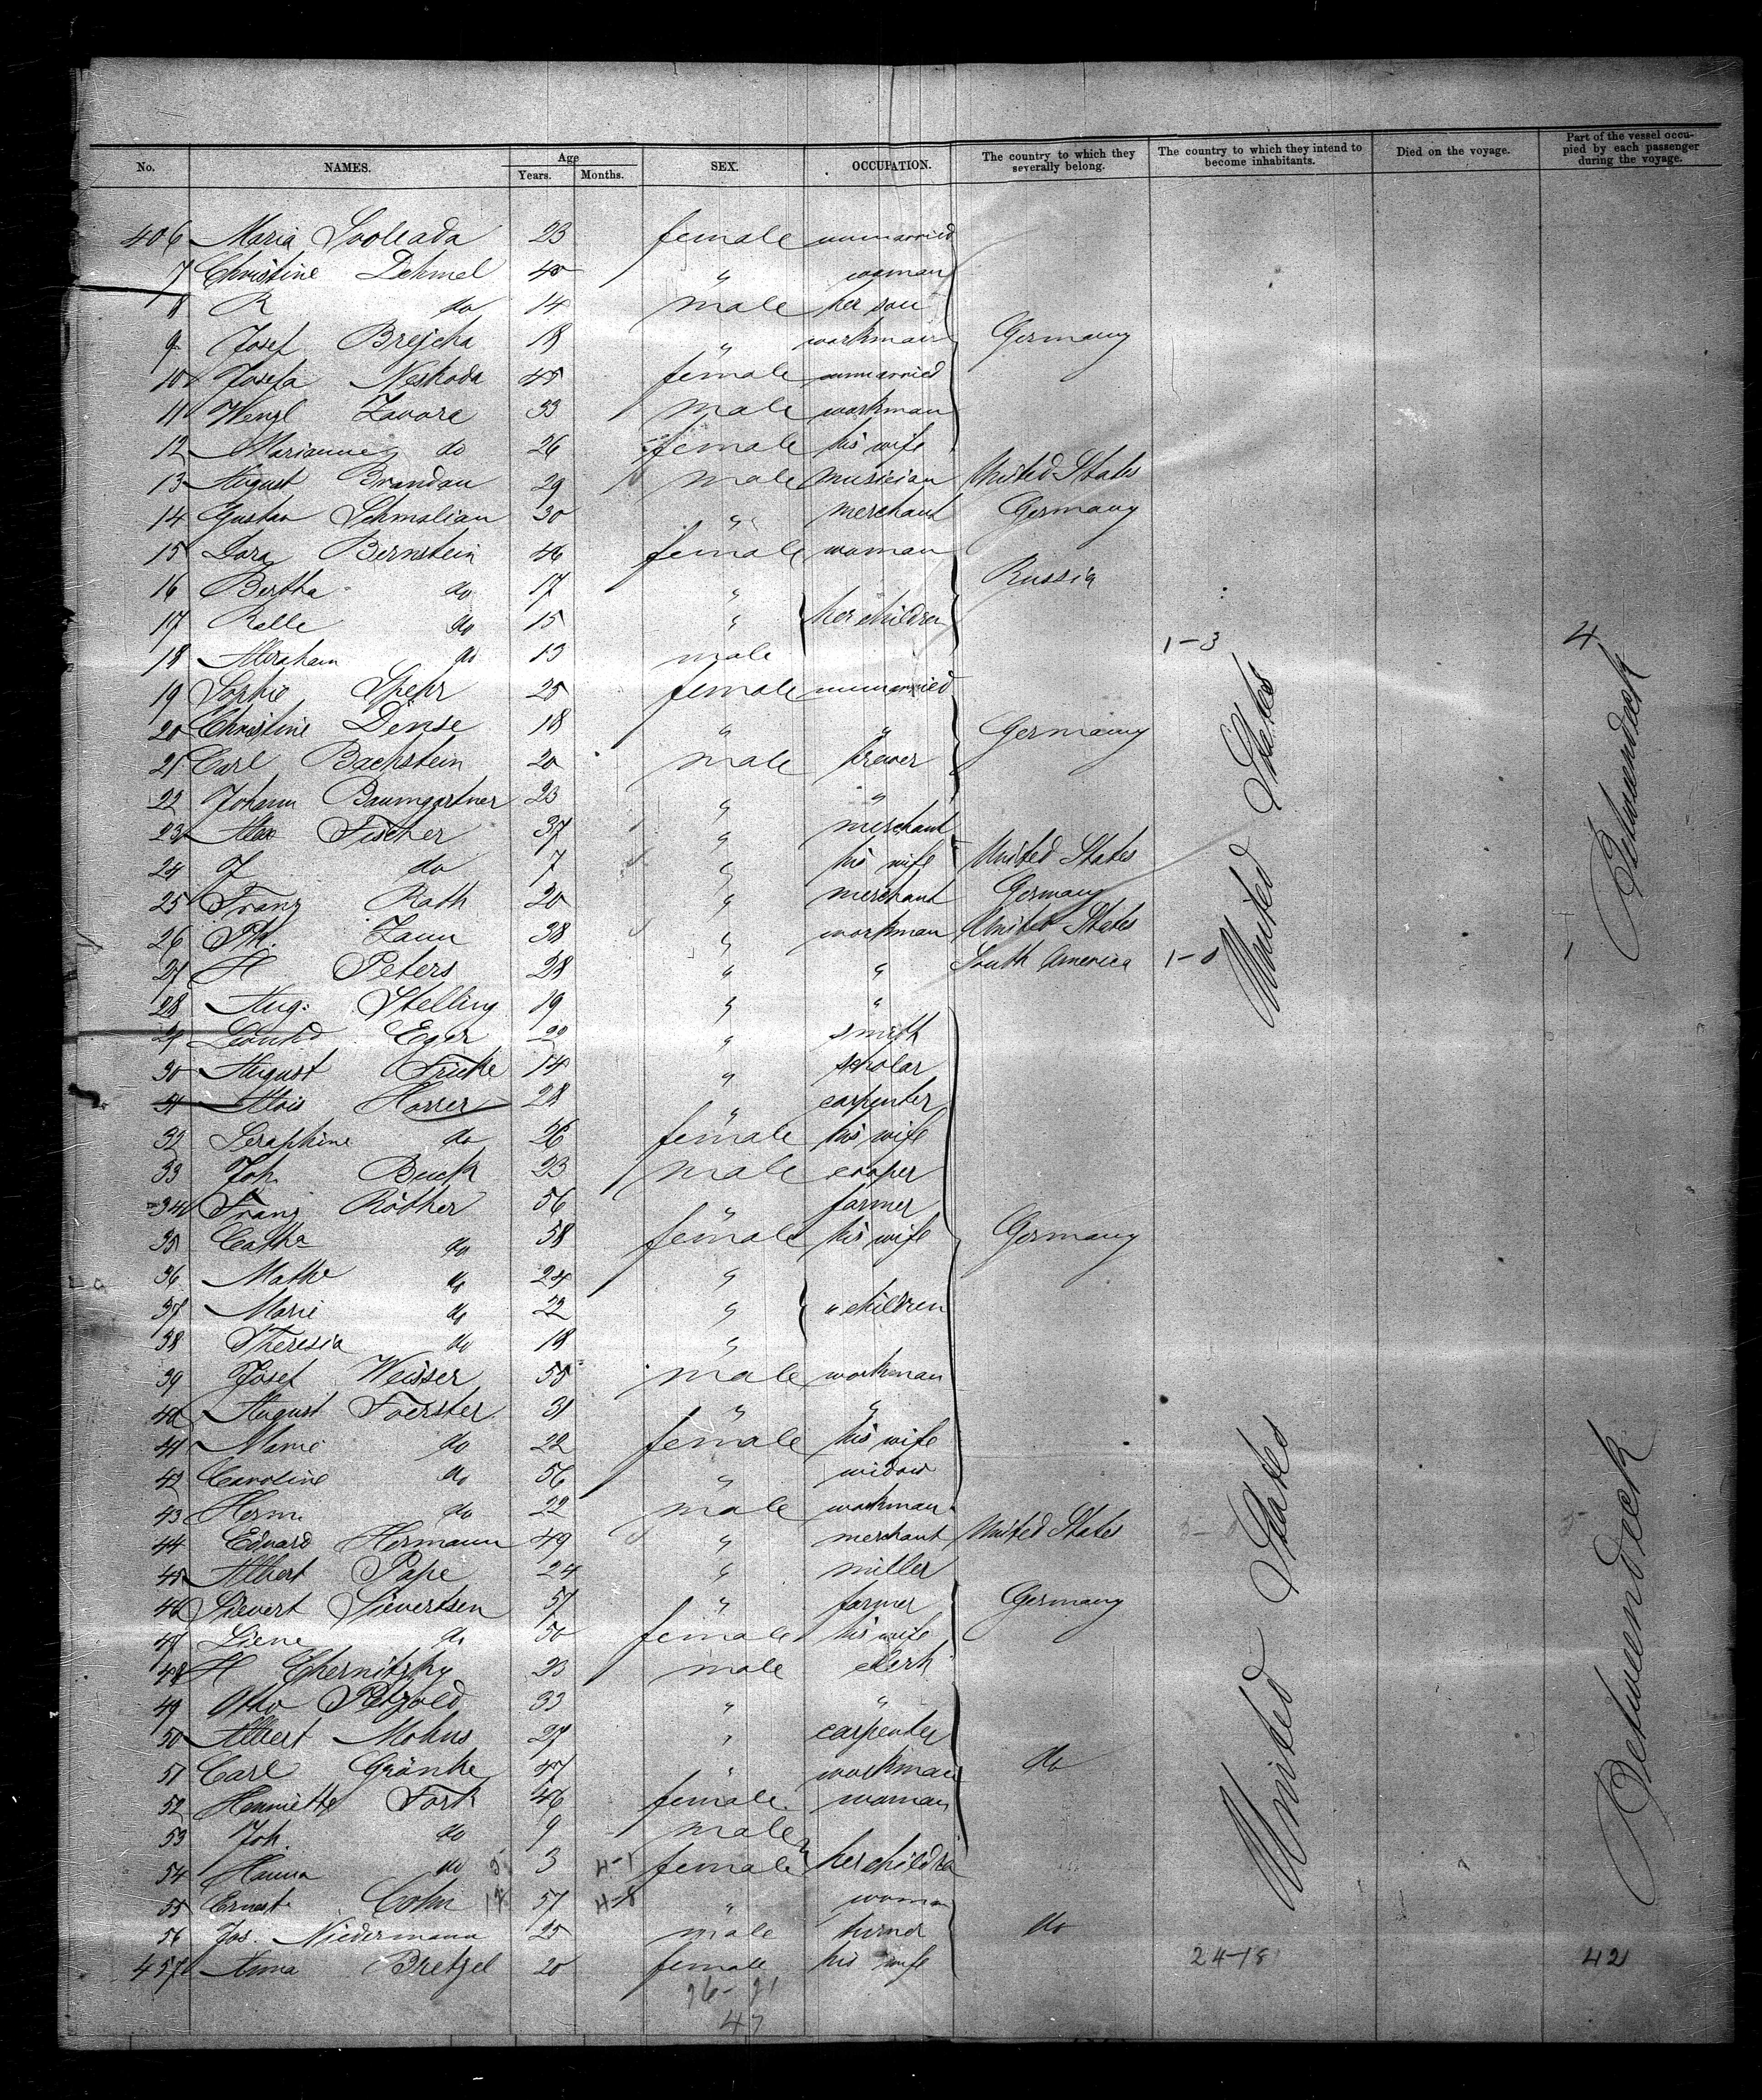 No. NAMES. Age Years. Months. SEX. OCCUPATION. The country to which they severally belong. The country to which they intend to become inhabitants. Died on the voyage. Part of the vessel occupied by each passenger during the voyage.
406 Maria 23 female unmarried
7 Christine Dehmel 40 " woman
8 R do 14 male her son
9 Josef Brejcha 18 " workman Germany
10 Josefa Neskoda 45 female unmarried
11 Wenzl Zavora 33 male workman
12 Marianne do 26 female his wife
13 August Brandau 29 male musician United States
14 Gustav Schmalian 30 " merchant Germany
15 Dora Bernstein 46 female woman
16 Bertha do 17 " Russia
17 Relle do 15 " her children
18 Abraham do 13 male 1-3 4
19 Sophie Spehr 25 female unmarried
20 Christine Dense 18 " " Germany
21 Carl Bachstein 20 male brewer
22 Johann Baumgartner 23 " "
23 Alex Fischer 37 " merchant
24 J do 7 " his wife United States
25 Franz Rath 20 " merchant Germany
26 Ph. Zaun 38 " workman United States
27 H Peters 28 " " South America 1-0 1
28 Aug: Stelling 19 " "
29 Eger 22 " smith
30 August Fricke 14 " scholar
31 Alois Horrer 28 " carpenter
32 Seraphine do 26 female his wife
33 Joh. Buck 23 male cooper
34 Franz Röther 56 " farmer
35 Catha do 58 female his wife Germany
36 Mathe do 24 "
37 Marie do 22 " " children
38 Theresia do 18 "
39 Josef Weisser 55 male workman
40 August Foerster 31 " "
41 Marie do 22 female his wife
42 Caroline do 56 " widow
43 Herm. do 22 male workman
44 Eduard Hermann 49 " merchant United States
45 Albert Pape 24 " miller
46 Sievert Sievertsen 57 " farmer Germany
47 Liene do 50 female his wife
48 H Chernitzky 23 male clerk
49 Otto Petzold 33 " "
50 Albert Mohns 27 " carpenter
51 Carl Grönke 47 " workman do
52 Henriette Fork 46 female woman
53 Joh. do 9 male
54 Hanna do 3 female her children
55 Ernest. Cohn 57 " woman
56 Jos. Niedermann 25 male turner do
457 Anna Bretzel 20 female his wife 24-18 42
47
United States
Betweendeck
United States
Betweendeck